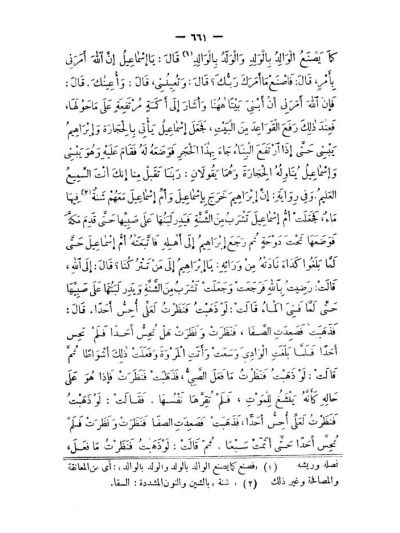 — ٦٦١ —
كما يَصْنَعُ الوَالِدُ بِالْوَلَدِ وَالْوَلَدُ بِالْوَالِدِ(١) قَالَ : يَا إِسْمَاعِيلُ إِنَّ اللهَ أَمَرَنِى
بِأَمْرٍ، قَالَ: فَاصْنَعْ مَا أَمَرَكَ رَبُّكَ؟ قَالَ : وَتُعِينُنِى، قَالَ : وَأُعِينُكَ. قَالَ :
فَإِنَّ اللهَ أَمَرَنِى أَنْ أَبْنِىَ بَيْتًا هٰهُنَا وَأَشَارَ إِلَى أَكَمَةٍ مُرْتَفِعَةٍ عَلَى مَا حَوْلَهَا،
فَعِنْدَ ذٰلِكَ رَفَعَ الْقَوَاعِدَ مِنَ الْبَيْتِ، فَجَعَلَ إِسْمَاعِيلُ يَأْتِى بِالْحِجَارَةِ وَإِبْرَاهِيمُ
يَبْنِى حَتَّى إِذَا ارْتَفَعَ الْبِنَاءُ جَاءَ بِهٰذَا الْحَجَرِ فَوَضَعَهُ لَهُ فَقَامَ عَلَيْهِ وَهُوَ يَبْنِى
وَإِسْمَاعِيلُ يُنَاوِلُهُ الْحِجَارَةَ وَهُمَا يَقُولَانِ : رَبَّنَا تَقَبَّلْ مِنَّا إِنَّكَ أَنْتَ السَّمِيعُ
العَلِيمُ. وَفِى رِوَايَةٍ: إِنَّ إِبْرَاهِيمَ خَرَجَ بِإِسْمَاعِيلَ وَأُمِّ إِسْمَاعِيلَ مَعَهُمْ شَنَّةٌ(٢) فِيهَا
مَاءٌ، فَجَعَلَتْ أُمُّ إِسْمَاعِيلَ تَشْرَبُ مِنَ الشَّنَّةِ فَيَدِرُّ لَبَنُهَا عَلَى صَبِيِّهَا حَتَّى قَدِمَ مَكَّةَ
فَوَضَعَهَا تَحْتَ دَوْحَةٍ ثُمَّ رَجَعَ إِبْرَاهِيمُ إِلَى أَهْلِهِ فَاتَّبَعَتْهُ أُمُّ إِسْمَاعِيلَ حَتَّى
لَمَّا بَلَغُوا كَدَاءَ نَادَتْهُ مِنْ وَرَائِهِ: يَا إِبْرَاهِيمُ إِلَى مَنْ تَتْرُكُنَا؟ قَالَ: إِلَى اللهِ،
قَالَتْ: رَضِيتُ بِاللهِ فَرَجَعَتْ وَجَعَلَتْ تَشْرَبُ مِنَ الشَّنَّةِ وَيَدِرُّ لَبَنُهَا عَلَى صَبِيِّهَا
حَتَّى لَمَّا فَنِىَ الْمَاءُ قَالَتْ: لَوْ ذَهَبْتُ فَنَظَرْتُ لَعَلِّى أُحِسُّ أَحَدًا. قَالَ :
فَذَهَبَتْ فَصَعِدَتِ الصَّفَا ، فَنَظَرَتْ وَنَظَرَتْ هَلْ تُحِسُّ أَحَدًا فَلَمْ تُحِسَّ
أَحَدًا فَلَمَّا بَلَغَتِ الْوَادِىَ وَسَعَتْ وَأَتَتِ الْمَرْوَةَ وَفَعَلَتْ ذٰلِكَ أَشْوَاطًا ثُمَّ
قَالَتْ: لَوْ ذَهَبْتُ فَنَظَرْتُ مَا فَعَلَ الصَّبِىُّ، فَذَهَبَتْ فَنَظَرَتْ فَإِذَا هُوَ عَلَى
حَالِهِ كَأَنَّهُ يَنْشَغُ لِلْمَوْتِ، فَلَمْ تُقِرَّهَا نَفْسُهَا ، فَقَالَتْ: لَوْ ذَهَبْتُ
فَنَظَرْتُ لَعَلِّى أُحِسُّ أَحَدًا، فَذَهَبَتْ فَصَعِدَتِ الصفا فَنَظَرَتْ وَنَظَرَتْ فَلَمْ
تُحِسَّ أَحَدًا حَتَّى أَتَمَّتْ سَبْعًا. ثُمَّ قَالَتْ: لَوْ ذَهَبْتُ فَنَظَرْتُ مَا فَعَلَ،
نصله وريشه (١) ، فصنع كما يصنع الوالد بالولد والولد بالوالد، : أى من المعانقة
والمصالحة وغير ذلك (٢) ، شنة ، بالشين والنون المشددة : السقا.